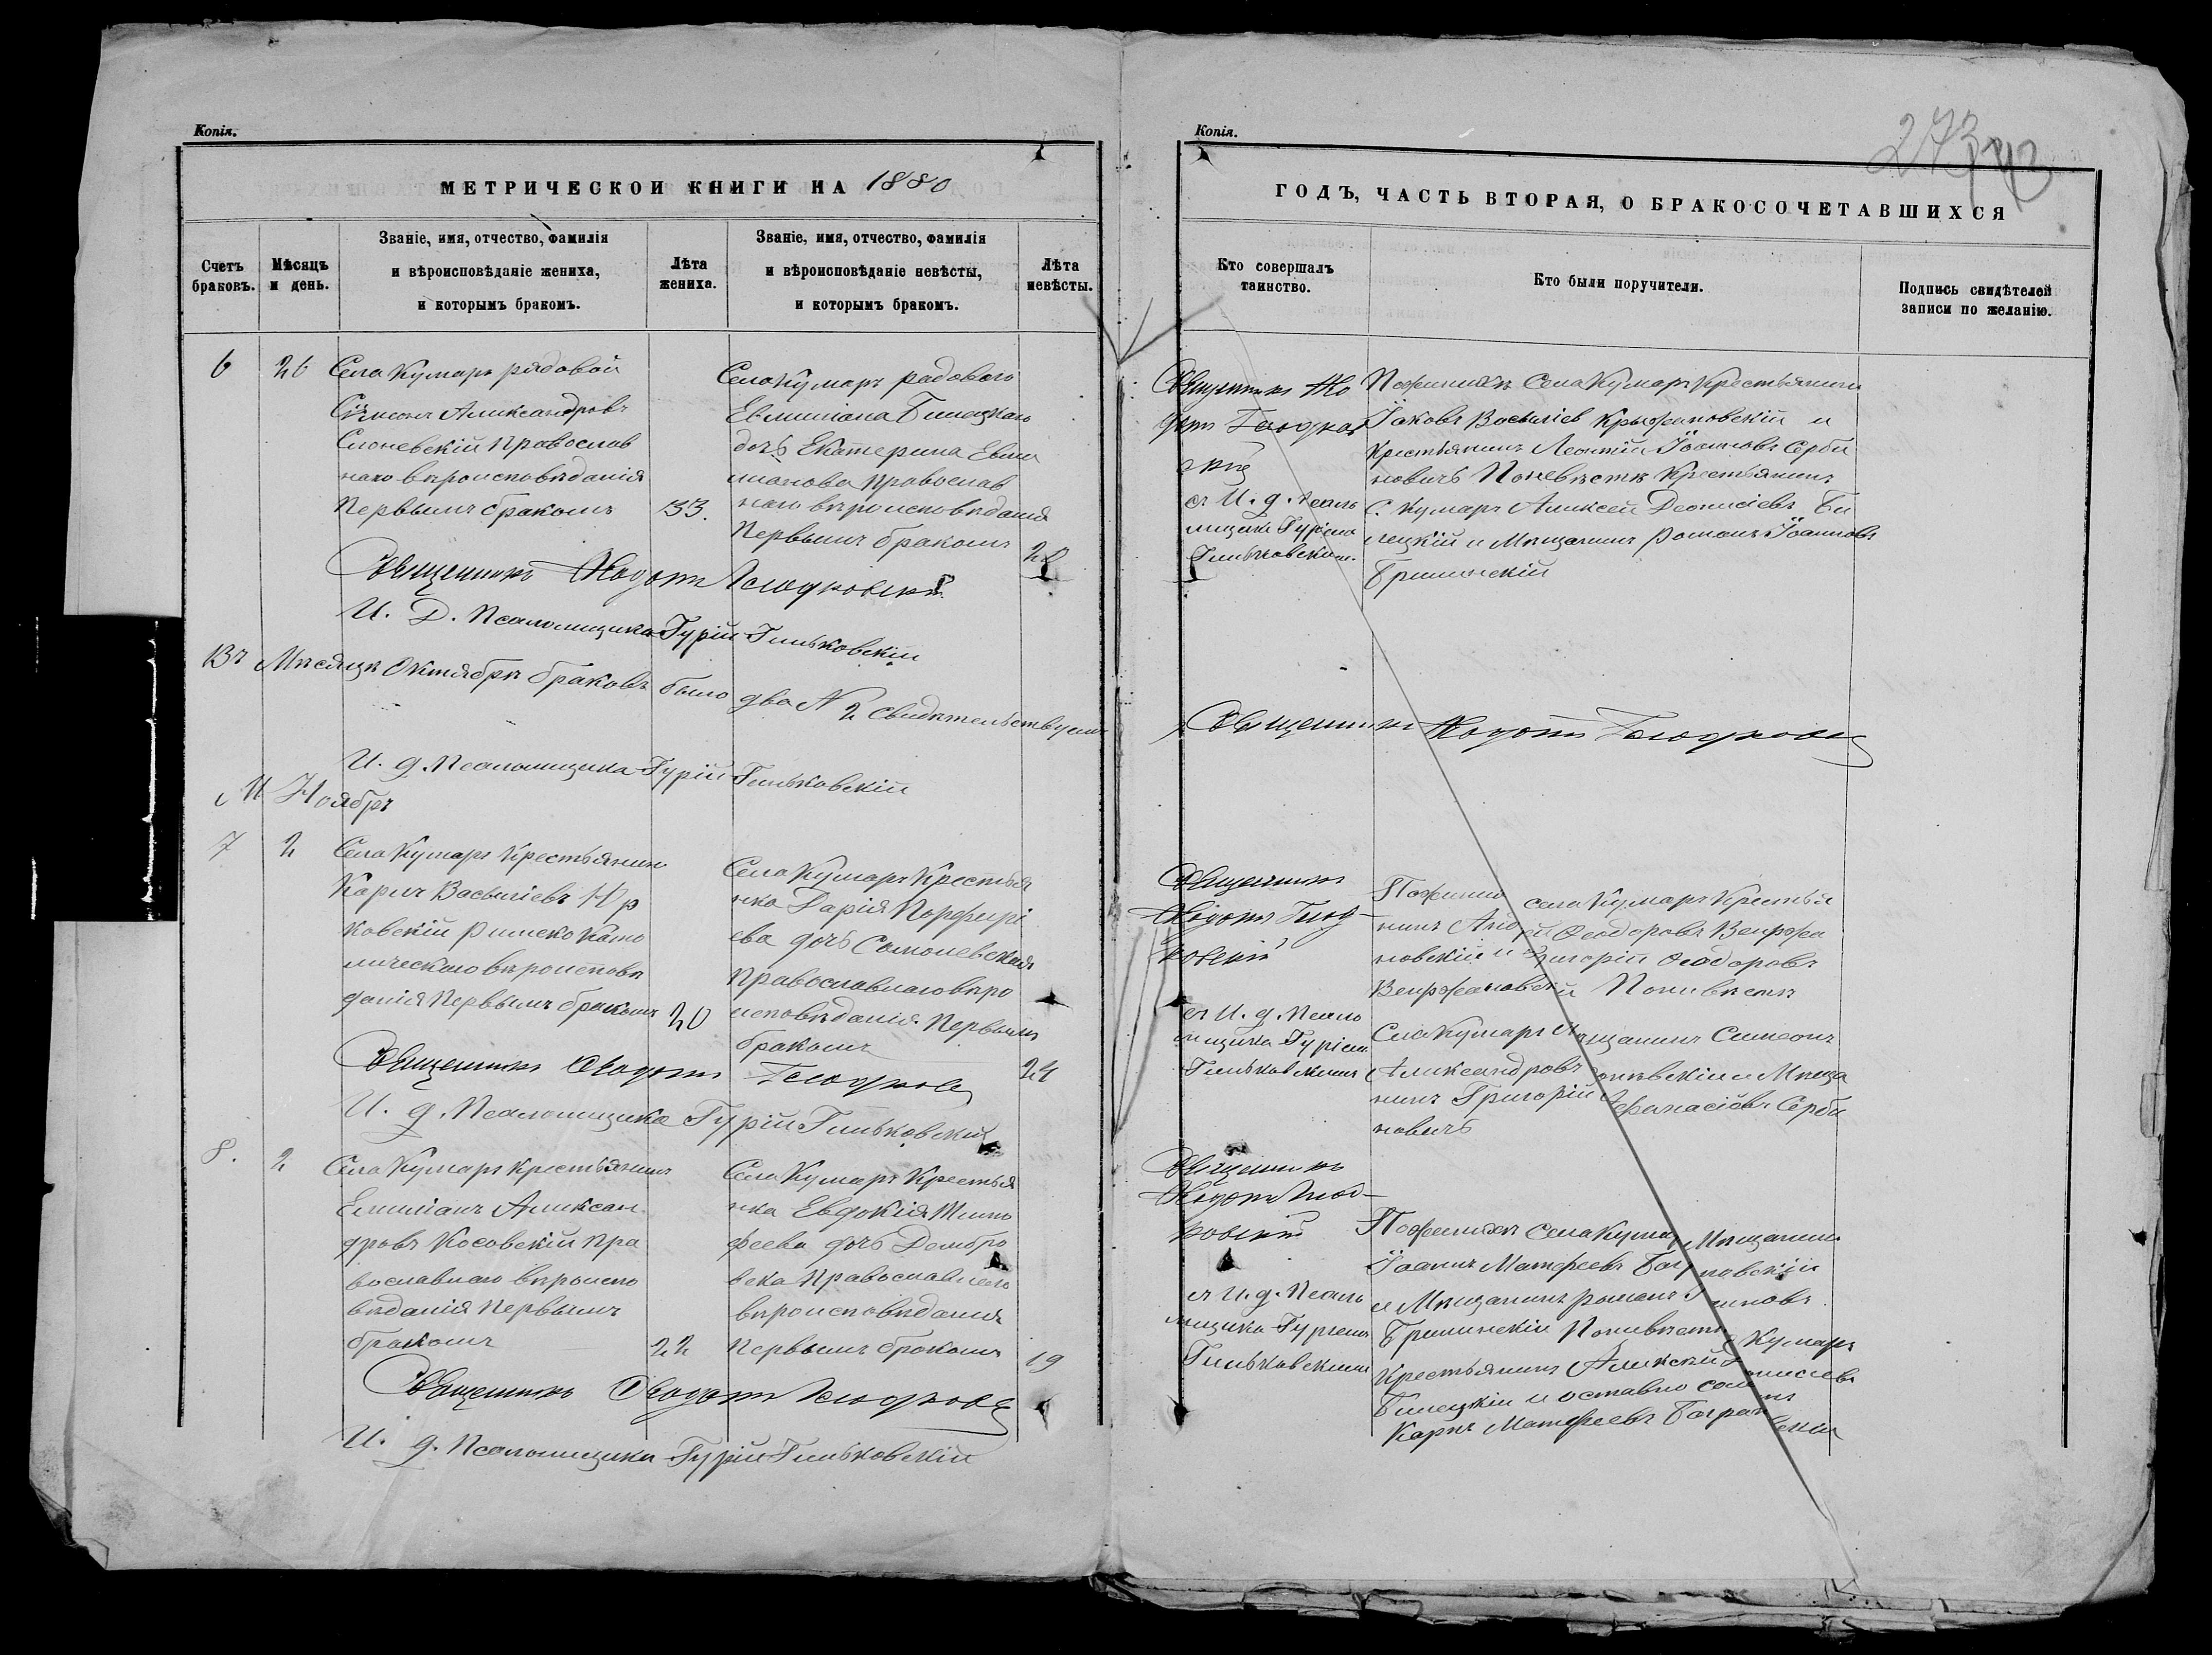 Копія.
МЕТРИЧЕСКОЙ КНИГИ НА 1880
Счетъ браковъ.
Мѣсяцъ и день.
Званіе, имя, отчество, фамилія
и вѣроисповѣданіе жениха,
и которымъ бракомъ.
Лѣта жениха.
Званіе, имя, отчество, фамилія
и вѣроисповѣданіе невѣсты,
и которымъ бракомъ.
Лѣта невѣсты.
6
26
Села Кумаръ рядовой
Сѵмеонъ Александровъ
Православ
наго вѣроисповѣданія
Первымъ бракомъ
33.
Села Кумаръ рядоваго
Евмиліана Билецкаго
дочь Екатерина Евми
ліанова православ
наго вѣроисповѣданія
Первымъ бракомъ
22
Священникъ Ѳеодотъ
И. Д. Псаломщика Гурій Гиньковскій
Въ Мѣсяцѣ Октябрѣ браковъ было два № 2 свидѣтельствуемъ
И. д. Псаломщика Гурій Гиньковскій
Ноябрь
7
2
Села Кумаръ Крестьянинъ
Карпъ Васыліевъ
ковскій римско като
лическаго вѣроисповѣ
данія Первымъ бракомъ
20
Села Кумаръ Крестья
нка Дарія Порфирі
ева дочь
Православнаго вѣро
исповѣданія Первымъ
бракомъ
24
Священникъ Ѳеодотъ
И. д. Псаломщика Гурій Гиньковскій
8.
2
Села Кумаръ крестьянинъ
Емиліанъ Алексан
дровъ Косовскій Пра
вославнаго вѣроиспо
вѣданія Первымъ
бракомъ
22
Села Кумаръ Крестья
нка Евдокія Тимо
феева дочь Домбро
вска Православнаго
вѣроисповѣданія
Первымъ бракомъ
19
Священникъ Ѳеодотъ
И. д. Псаломщика Гурій Гиньковскій
Копія.
273
ГОДЪ, ЧАСТЬ ВТОРАЯ, О БРАКОСОЧЕТАВШИХСЯ
Кто совершалъ таинство.
Кто были поручители.
Подпись свидѣтелей записи по желанію.
Священникъ Ѳео
дотъ
съ И. д. Псало
мщика Гуріемъ
Гиньковскимъ.
Пожениху Села Кумаръ Крестьянинъ
Іаковъ Васыліев Крыжановскій и
Крестьянинъ Леонтій Іоанновъ Серби
новичъ Поневѣстѣ Крестьянинъ
С. Кумаръ Алексей Деонисіевъ Би
лецкій и Мѣщанинъ Романъ Іоанновъ
Гриминскій
Священникъ Ѳеодотъ
Священникъ
Ѳеодотъ
съ И. д. Псало
мщика Гуріемъ
Гиньковскимъ
села Кумаръ Крестья
нинъ Андрей Ѳеодоровъ Венгржа
новскій и Григорій Ѳеодоровъ
Венгржановскій Поневѣстѣ
Села Кумаръ Мѣщанинъ Симеонъ
Александровъ и Мѣща
нинъ Григорій Афанасіевъ Серби
новичъ
Священникъ
Ѳеодотъ
съ И. д. Псало
мщика Гуріемъ
Гиньковскимъ
Пожениху Села Кумаръ Мѣщанинъ
Іоаннъ Матфеевъ
и Мѣщанинъ романъ Іоанновъ
Гриминскій Поневѣстѣ С. Кумаръ
Крестьянинъ Алексей Деонисіевъ
Билецкій и
Карпъ Матфеевъ